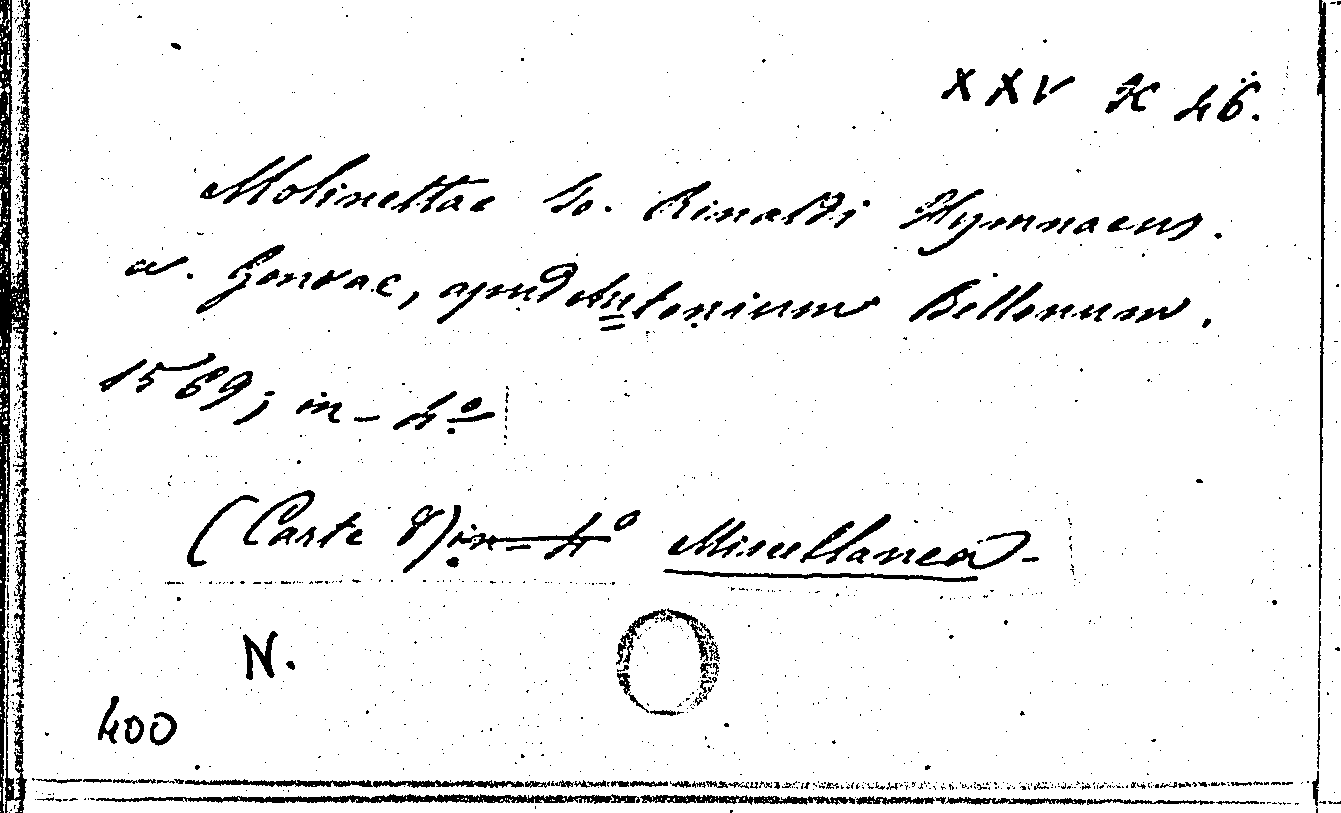 XXV K 46.
Molinettae Io. Rinaldi Hymnaeus.
a. Genvae, apud Antonium Bellonum.
1569; in-4º
(Carte 8) in-4º Miscellanea-
N.
400